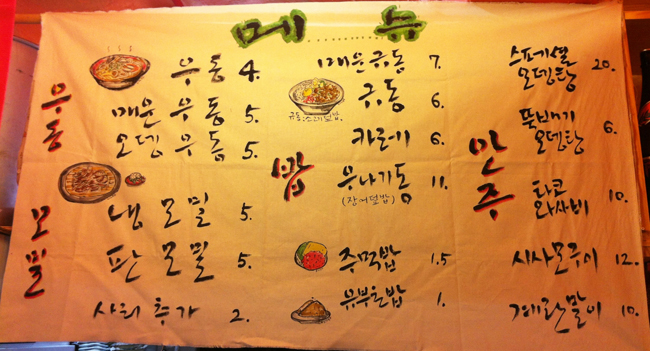 메뉴
우동
우동 4.
매운 우동 5.
오뎅 우동 5.
모밀
냉 모밀 5.
판 모밀 5.
사리 추가 2.
밥
매운규동 7.
규동 6.
규동:소고기덮밥
카레 6.
우나기동 11.
(장어덮밥)
주먹밥 1.5
유부초밥 1.
안주
스페셜
오뎅탕 20.
뚝배기
오뎅탕 6.
타코
와사비 10.
시사모구이 12.
계란말이 10.